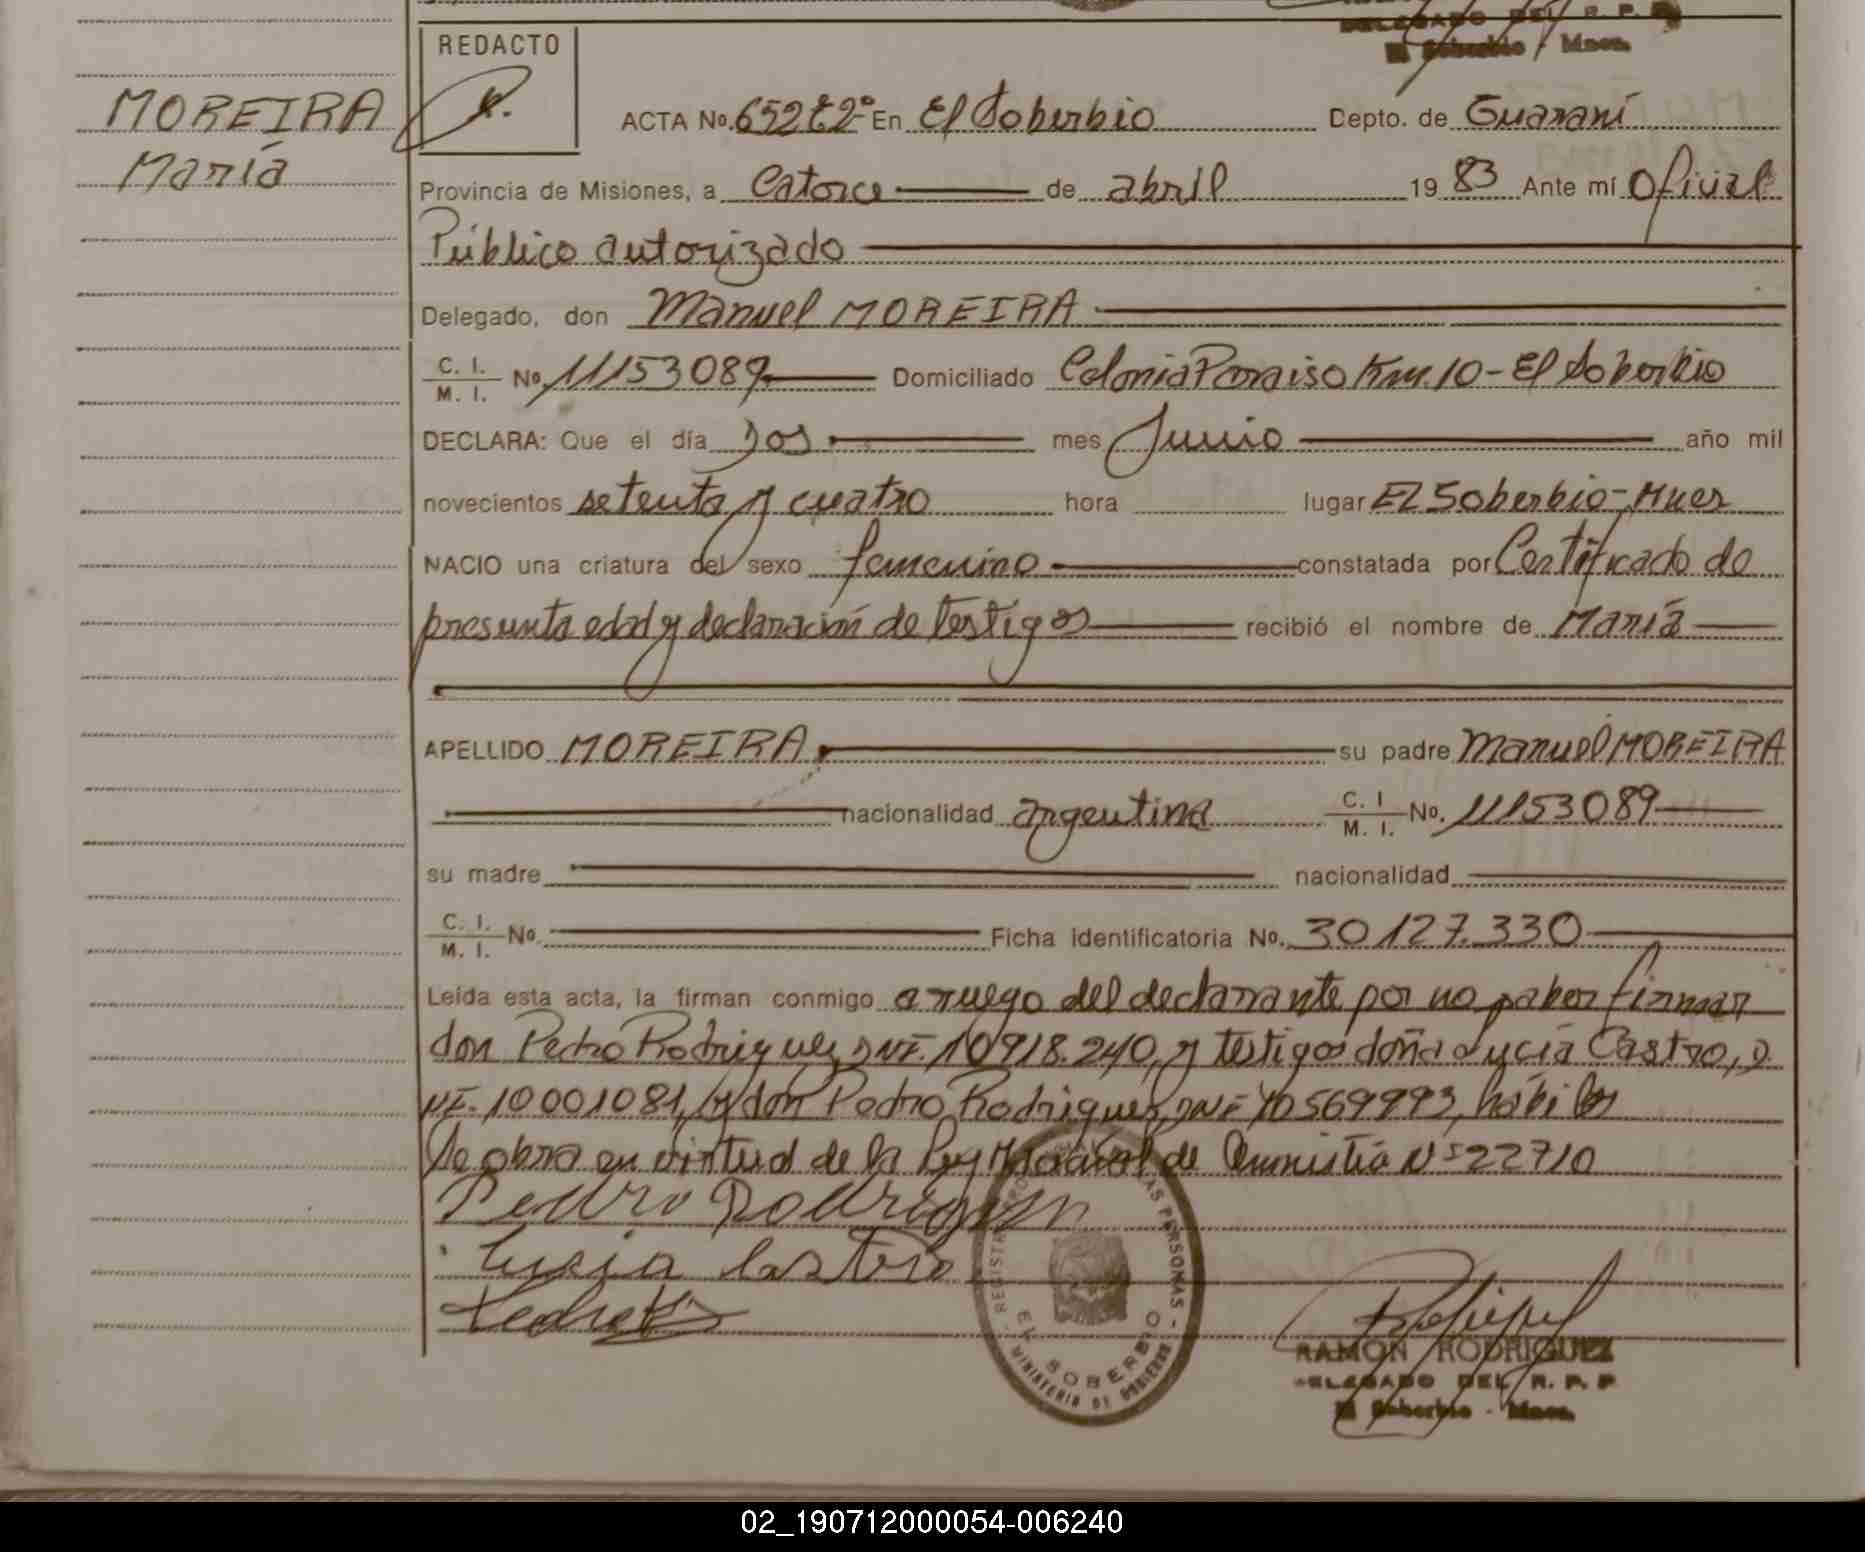 DELEGADO DEL R. P. P.
El Soberbio - Mnes.
REDACTO
MOREIRA
María
ACTA No. 652 t2º En El Soberbio Depto. de Guaraní
Provincia de Misiones, a Catorce de abril 19 83 Ante mí Oficial
Público autorizado
Delegado, don Manuel MOREIRA
C. I. / M. I. No. 11153089 Domiciliado Colonia Paraiso Km. 10 - El Soberbio
DECLARA: Que el día Dos mes Junio año mil
novecientos setenta y cuatro hora lugar El Soberbio - Mnes
NACIO una criatura del sexo femenino constatada por Certificado de
presunta edad y declaración de testigos recibió el nombre de María
APELLIDO MOREIRA su padre Manuel MOREIRA
nacionalidad argentina C. I / M. I. No. 11153089
su madre nacionalidad
C. I. / M. I. No. Ficha identificatoria No. 30127.330
Leída esta acta, la firman conmigo a ruego del declarante por no saber firmar
don Pedro Rodriguez, DNI. 10918.240, y testigos doña Lucía Castro, D.
NI. 10001081, y don Pedro Rodriguez, DNI 10569993, hábiles
Se obra en virtud de la Ley Nacional de Amnistía Nº 22710
Pedro Rodriguez
Lucia Castro
REGISTRO LAS PERSONAS
EL SOBERBIO
MINISTERIO DE GOBIERNO
RAMON RODRIGUEZ
DELEGADO DEL R. P. P
El Soberbio - Mnes.
02_190712000054-006240